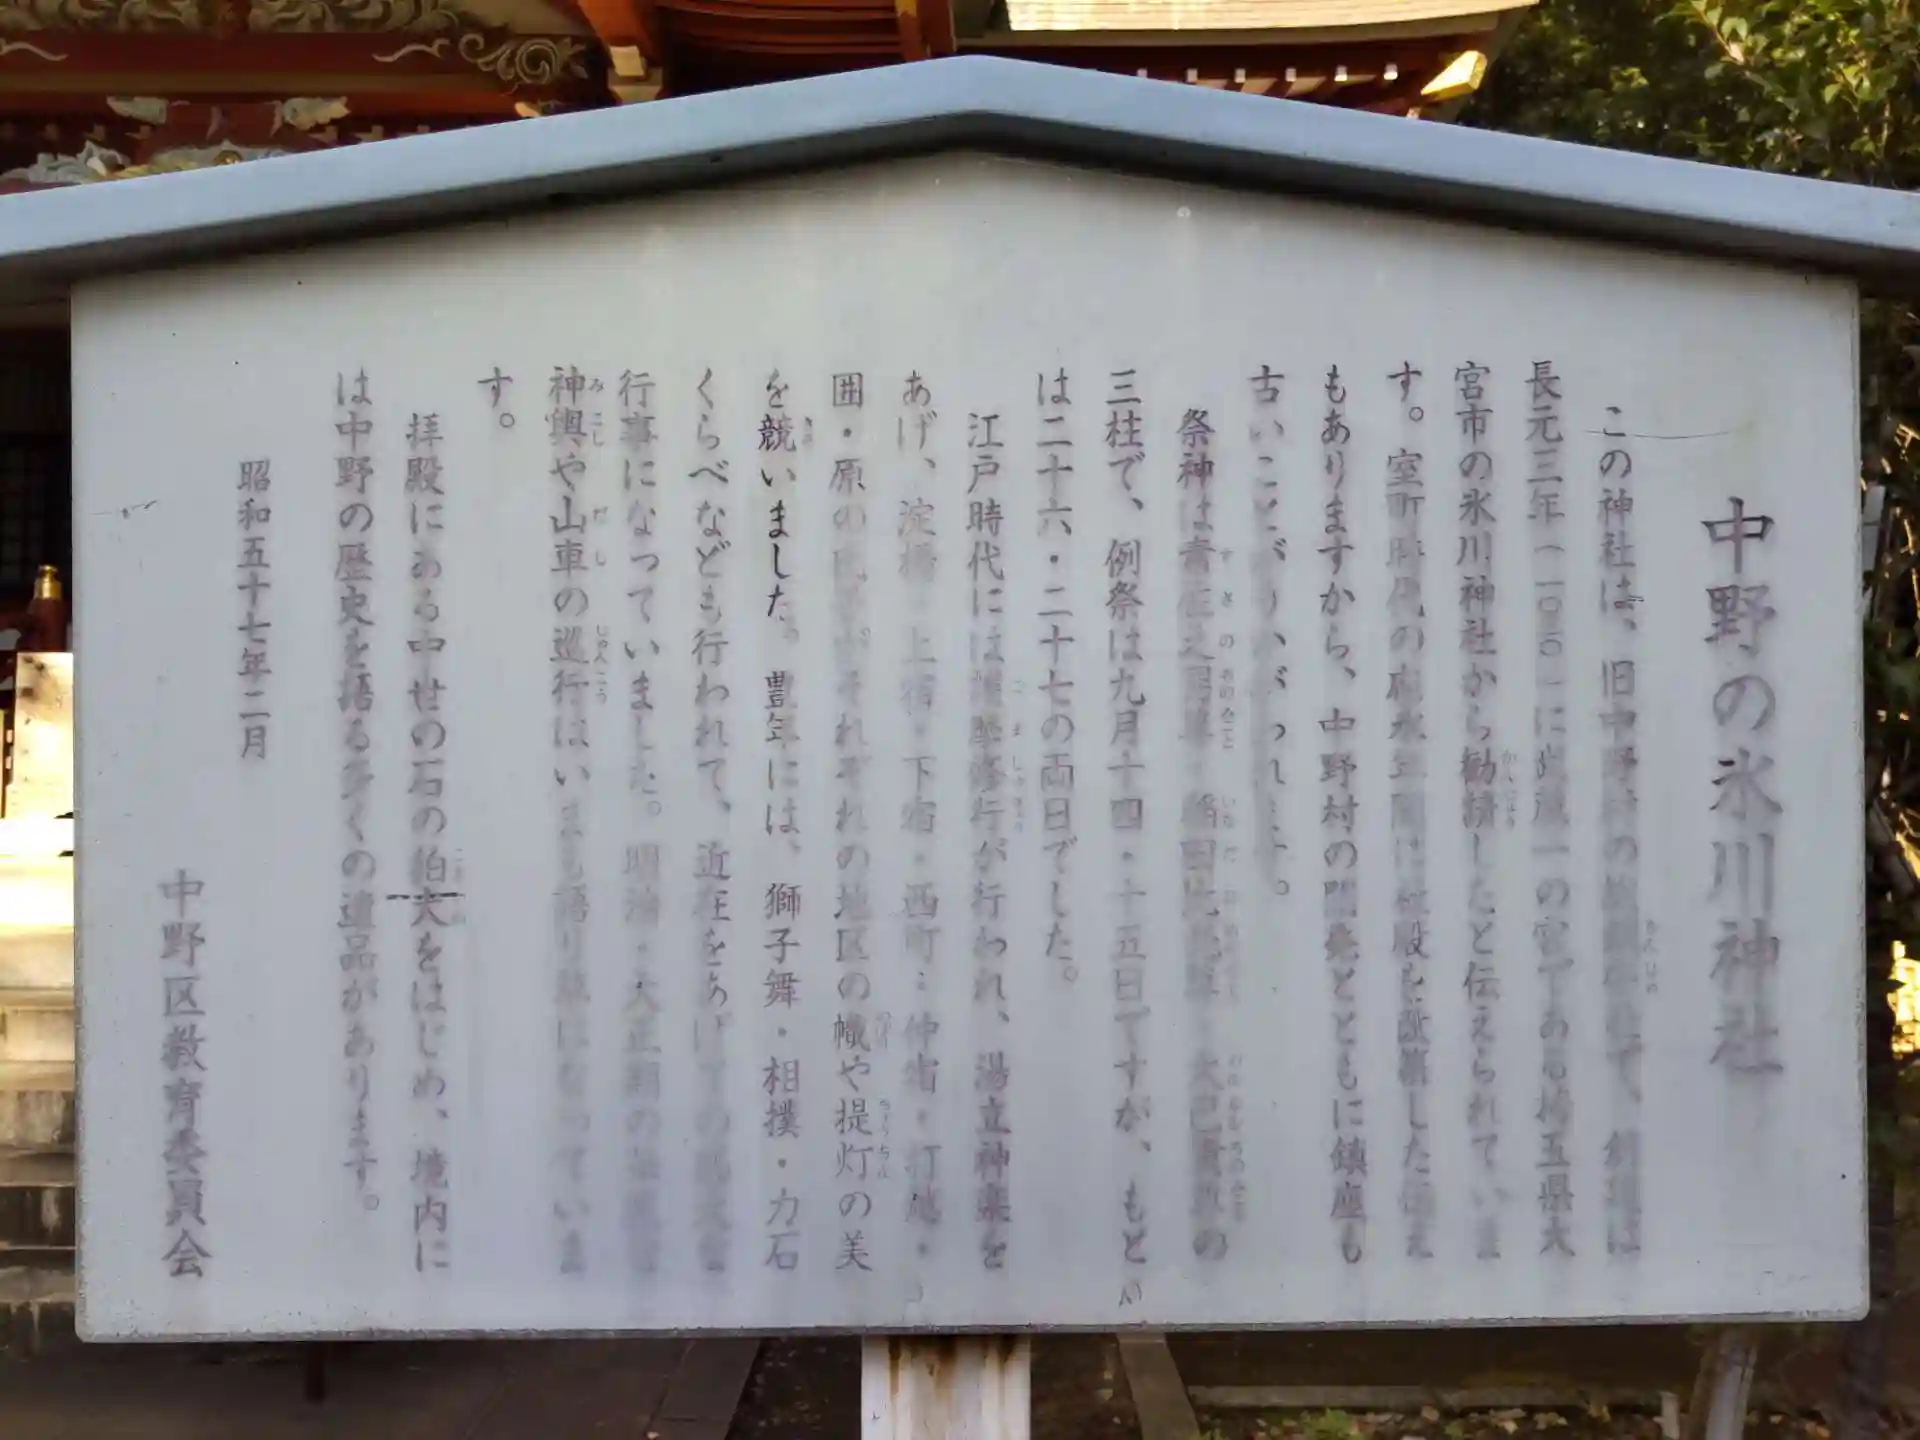 中野の氷川神社
この神社は、旧中野村の総鎮守で、創建は
長元三年(一〇三〇)に武蔵一の宮である埼玉県大
宮市の氷川神社から勧請したと伝えられていま
す。室町時代の応永年間には社殿を改築した伝え
もありますから、中野村の開発とともに鎮座も
古いことがうかがわれます。
祭神は素佐之男尊・稲田比売尊・大己貴尊の
三柱で、例祭は九月十四・十五日ですが、もと
は二十六・二十七の両日でした。
江戸時代には護摩修行が行われ、湯立神楽を
あげ、淀橋・上宿・下宿・西町・仲宿・打越・
囲・原の氏子がそれぞれの地区の幟や提灯の美
を競いました。豊年には、獅子舞・相撲・力石
くらべなども行われて、近在をあげての
行事になっていました。明治・大正期の
神輿や山車の巡行はいまも語り草になっていま
す。
拝殿にある中世の石の狛犬をはじめ、境内に
は中野の歴史を語る多くの遺品があります。
昭和五十七年二月
中野区教育委員会